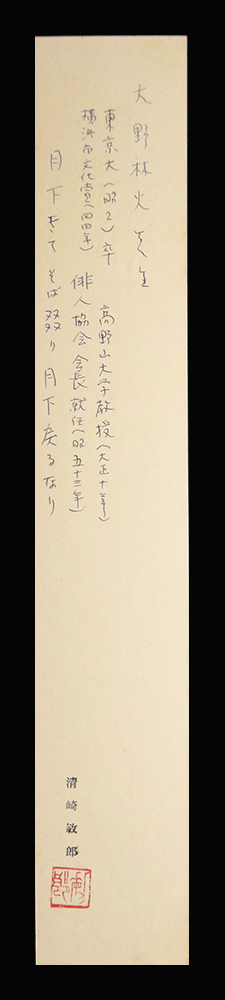 大野林火先生
東京大(昭2)卒 高野山大学教授(大正十年)
横浜市文化賞(四四年) 俳人協会会長就任(昭五十三年)
月下きて そば 月下戻るなり
清崎敏郎